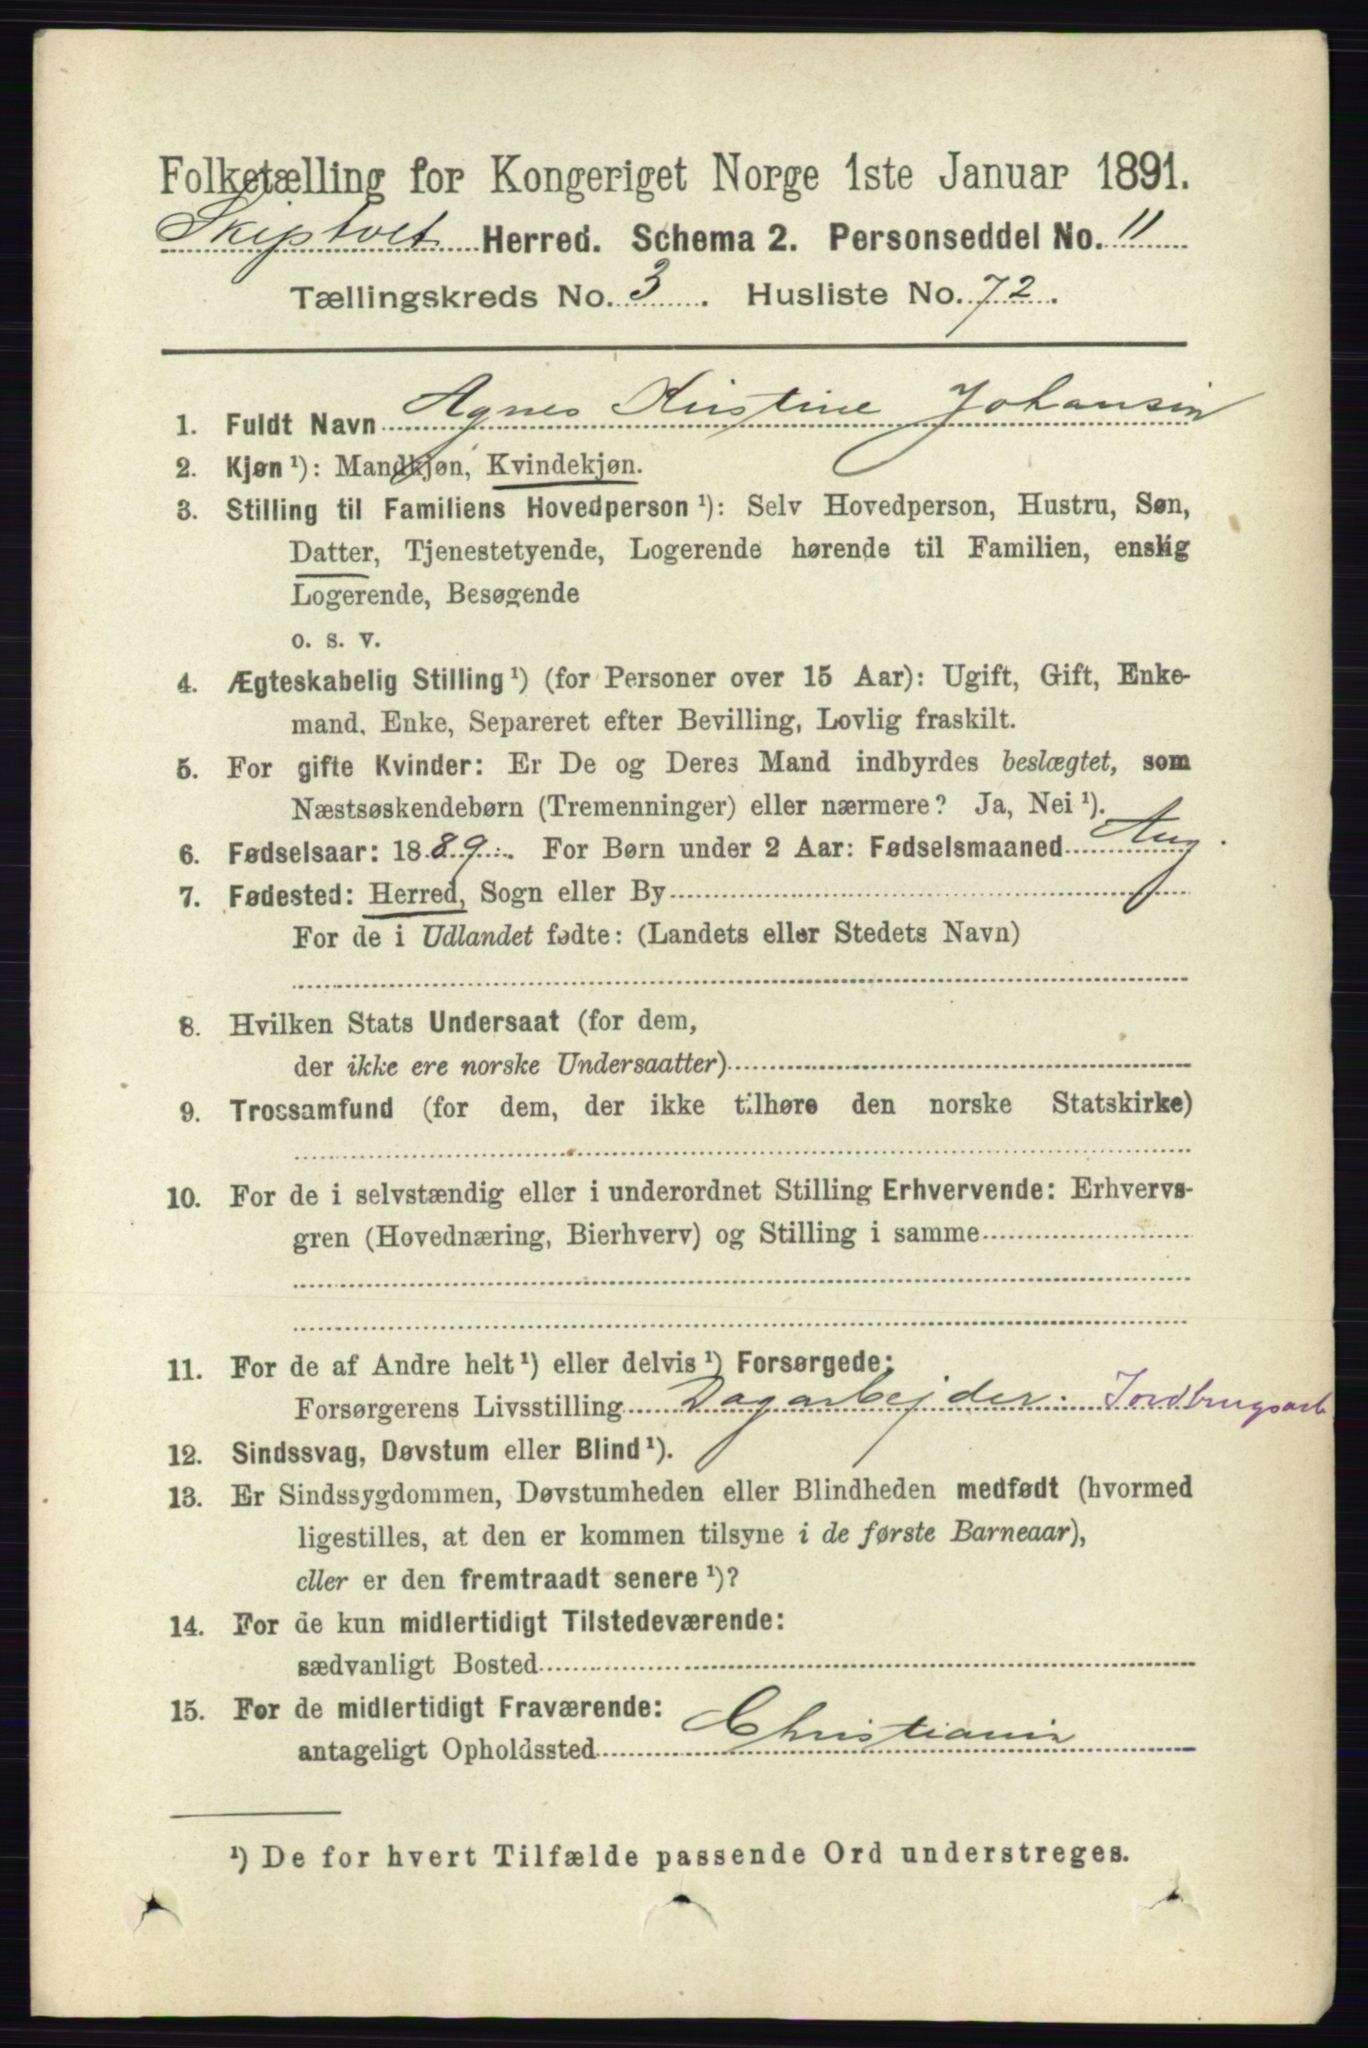 Folketælling for Kongeriget Norge 1ste Januar 1891.
Skiptvet Herred. Schema 2. Personseddel No. 11
Tællingskreds No. 3. Husliste No. 72.
1. Fuldt Navn Agnes Kristine Johansen
2. Kjøn ¹): Mandkjøn, Kvindekjøn.
3. Stilling til Familiens Hovedperson ¹): Selv Hovedperson, Hustru, Søn,
Datter, Tjenestetyende, Logerende hørende til Familien, enslig
Logerende, Besøgende
o. s. v.
4. Ægteskabelig Stilling ¹) (for Personer over 15 Aar): Ugift, Gift, Enke-
mand, Enke, Separeret efter Bevilling, Lovlig fraskilt.
5. For gifte Kvinder: Er De og Deres Mand indbyrdes beslægtet, som
Næstsøskendebørn (Tremenninger) eller nærmere? Ja, Nei ¹).
6. Fødselsaar: 1889. For Børn under 2 Aar: Fødselsmaaned Aug.
7. Fødested: Herred, Sogn eller By
For de i Udlandet fødte: (Landets eller Stedets Navn)
8. Hvilken Stats Undersaat (for dem,
der ikke ere norske Undersaatter)
9. Trossamfund (for dem, der ikke tilhøre den norske Statskirke)
10. For de i selvstændig eller i underordnet Stilling Erhvervende: Erhvervs-
gren (Hovednæring, Bierhverv) og Stilling i samme
11. For de af Andre helt ¹) eller delvis ¹) Forsørgede:
Forsørgerens Livsstilling Dagarbejder. Jordbrugsarb
12. Sindssvag, Døvstum eller Blind ¹).
13. Er Sindssygdommen, Døvstumheden eller Blindheden medfødt (hvormed
ligestilles, at den er kommen tilsyne i de første Barneaar),
eller er den fremtraadt senere ¹)?
14. For de kun midlertidigt Tilstedeværende:
sædvanligt Bosted
15. For de midlertidigt Fraværende:
antageligt Opholdssted Christiania
¹) De for hvert Tilfælde passende Ord understreges.